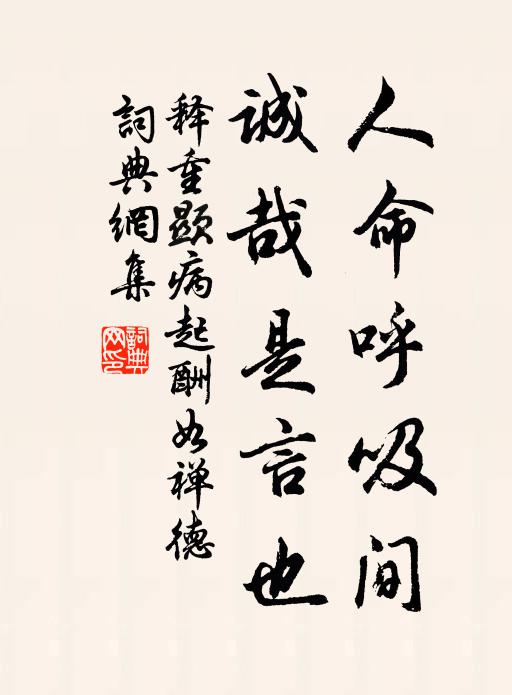 人命呼吸间
诚哉是言也
释重显病起酬如禅德
詞典網集
詞典网印